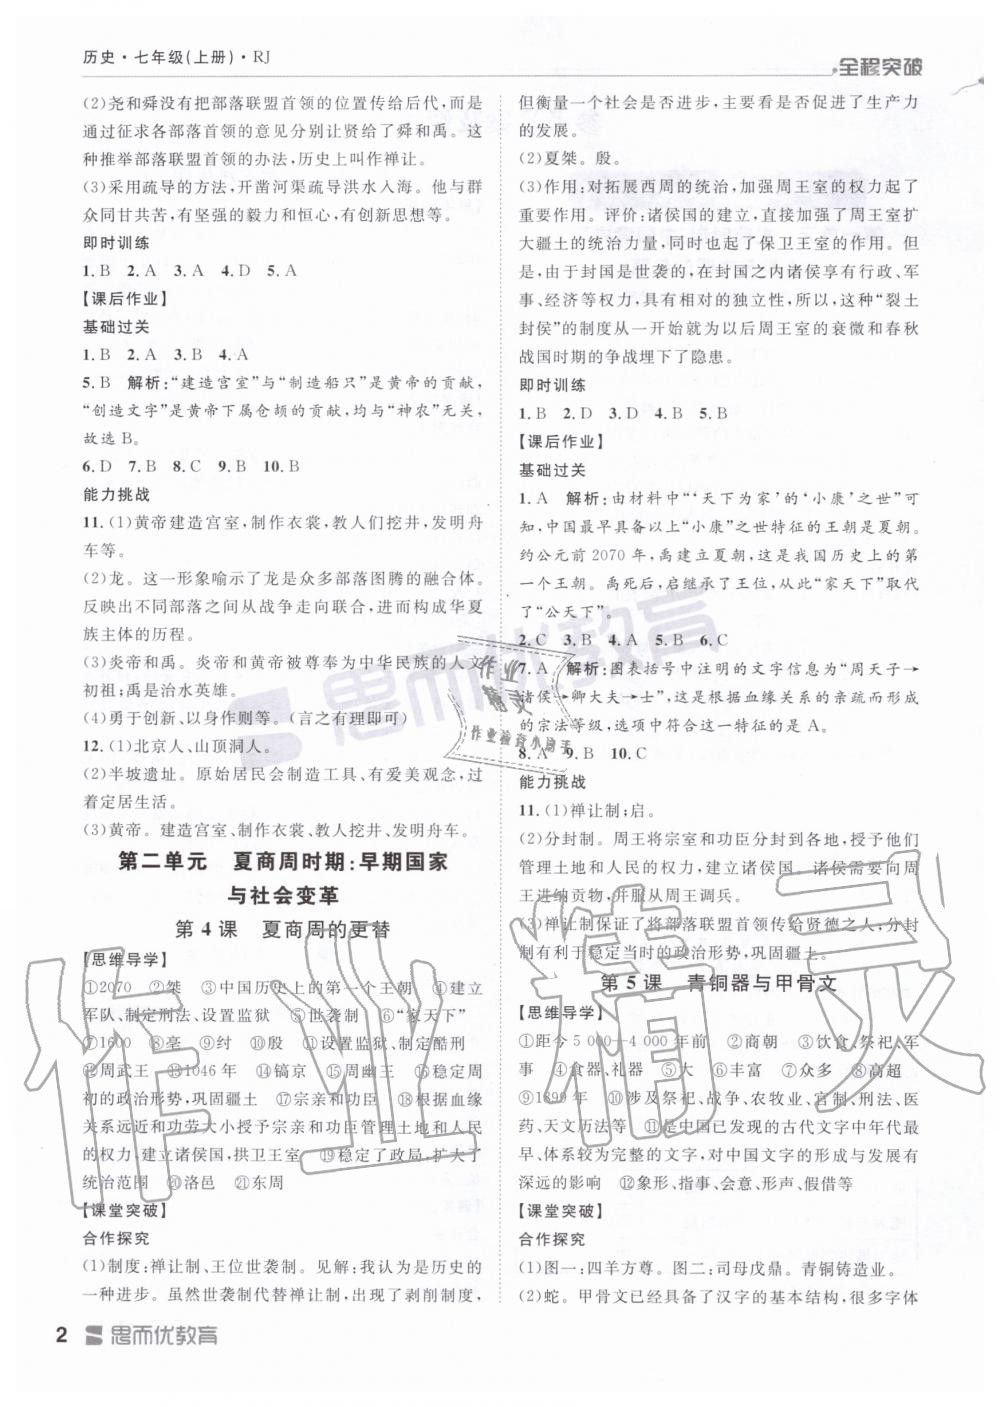 历史·七年级(上册)·RJ
全程突破
(2)尧和舜没有把部落联盟首领的位置传给后代,而是
通过征求各部落首领的意见分别让贤给了舜和禹。这
种推举部落联盟首领的办法,历史上叫作禅让。
(3)采用疏导的方法,开凿河渠疏导洪水入海。他与群
众同甘共苦,有坚强的毅力和恒心,有创新思想等。
即时训练
1. B 2. A 3. A 4. D 5. A
【课后作业】
基础过关
1. B 2. A 3. B 4. A
5. B 解析:“建造宫室”与“制造船只”是黄帝的贡献,
“创造文字”是黄帝下属仓颉的贡献,均与“神农”无关,
故选 B。
6. D 7. B 8. C 9. B 10. B
能力挑战
11. (1)黄帝建造宫室,制作衣裳,教人们挖井,发明舟
车等。
(2)龙。这一形象喻示了龙是众多部落图腾的融合体。
反映出不同部落之间从战争走向联合,进而构成华夏
族主体的历程。
(3)炎帝和禹。炎帝和黄帝被尊奉为中华民族的人文
初祖;禹是治水英雄。
(4)勇于创新、以身作则等。(言之有理即可)
12. (1)北京人、山顶洞人。
(2)半坡遗址。原始居民会制造工具、有爱美观念,过
着定居生活。
(3)黄帝。建造宫室、制作衣裳、教人挖井、发明舟车。
第二单元 夏商周时期:早期国家
与社会变革
第 4 课 夏商周的更替
【思维导学】
①2070 ②桀 ③中国历史上的第一个王朝 ④建立
军队、制定刑法、设置监狱 ⑤世袭制 ⑥“家天下”
⑦1600 ⑧亳 ⑨纣 ⑩殷 ⑪设置监狱、制定酷刑
⑫周武王 ⑬1046 年 ⑭镐京 ⑮周幽王 ⑯稳定周
初的政治形势,巩固疆土 ⑰宗亲和功臣 ⑱根据血缘
关系和功劳大小授予宗亲和功臣管理土地和人民
的权力,建立诸侯国,拱卫王室 ⑲稳定了政局,扩大了
统治范围 ⑳洛邑 ㉑东周
【课堂突破】
合作探究
(1)制度:禅让制、王位世袭制。见解:我认为是历史的
一种进步。虽然世袭制代替禅让制,出现了剥削制度,
但衡量一个社会是否进步,主要看是否促进了生产力
的发展。
(2)夏桀。殷。
(3)作用:对拓展西周的统治,加强周王室的权力起了
重要作用。评价:诸侯国的建立,直接加强了周王室扩
大疆土的统治力量,同时也起了保卫王室的作用。但
是,由于封国是世袭的,在封国之内诸侯享有行政、军
事、经济等权力,具有相对的独立性,所以,这种“裂土
封侯”的制度从一开始就为以后周王室的衰微和春秋
战国时期的争战埋下了隐患。
即时训练
1. B 2. D 3. D 4. B 5. B
【课后作业】
基础过关
1. A 解析:由材料中“‘天下为家’的‘小康’之世”可
知,中国最早具备以上“小康”之世特征的王朝是夏朝。
约公元前 2070 年,禹建立夏朝,这是我国历史上的第
一个王朝。禹死后,启继承了王位,从此“家天下”取代
了“公天下”。
2. C 3. B 4. A 5. B 6. C
7. A 解析:图表括号中注明的文字信息为“周天子→
诸侯→卿大夫→士”,这是根据血缘关系的亲疏而形成
的宗法等级,选项中符合这一特征的是 A。
8. A 9. B 10. C
能力挑战
11. (1)禅让制;启。
(2)分封制。周王将宗室和功臣分封到各地,授予他们
管理土地和人民的权力,建立诸侯国。诸侯需要向周
王进纳贡物,并服从周王调兵。
(3)禅让制保证了将部落联盟首领传给贤德之人,分封
制有利于稳定当时的政治形势,巩固疆土。
第 5 课 青铜器与甲骨文
【思维导学】
①距今 5 000—4 000 年前 ②商朝 ③饮食、祭祀、军
事 ④食器、礼器 ⑤大 ⑥丰富 ⑦众多 ⑧高超
⑨1899 年 ⑩涉及祭祀、战争、农牧业、官制、刑法、医
药、天文历法等 ⑪是中国已发现的古代文字中年代最
早、体系较为完整的文字,对中国文字的形成与发展有
深远的影响 ⑫象形、指事、会意、形声、假借等
【课堂突破】
合作探究
(1)图一:四羊方尊。图二:司母戊鼎。青铜铸造业。
(2)蛇。甲骨文已经具备了汉字的基本结构,很多字体
2 思而优教育
思而优教育
作业精灵
作业检查小助手
作业精灵